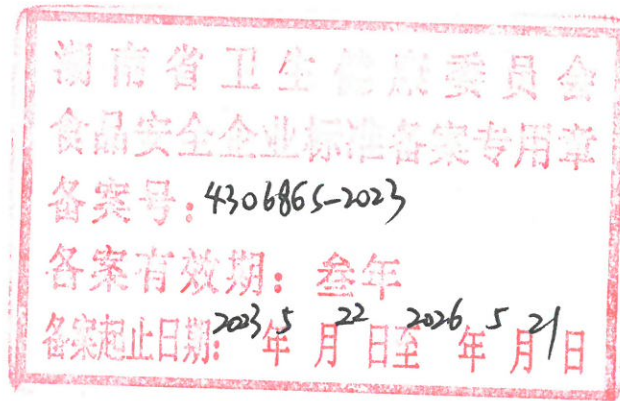 湖南省卫生健康委员会
食品安全企业标准备案专用章
备案号：4306865-2023
备案有效期：叁年
备案起止日期：2023年5月22日至2026年5月21日